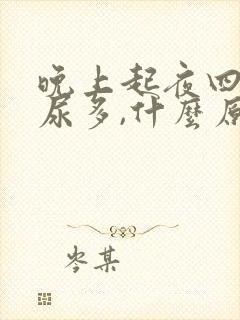 晚上起夜四
尿多,什麼原
岑某